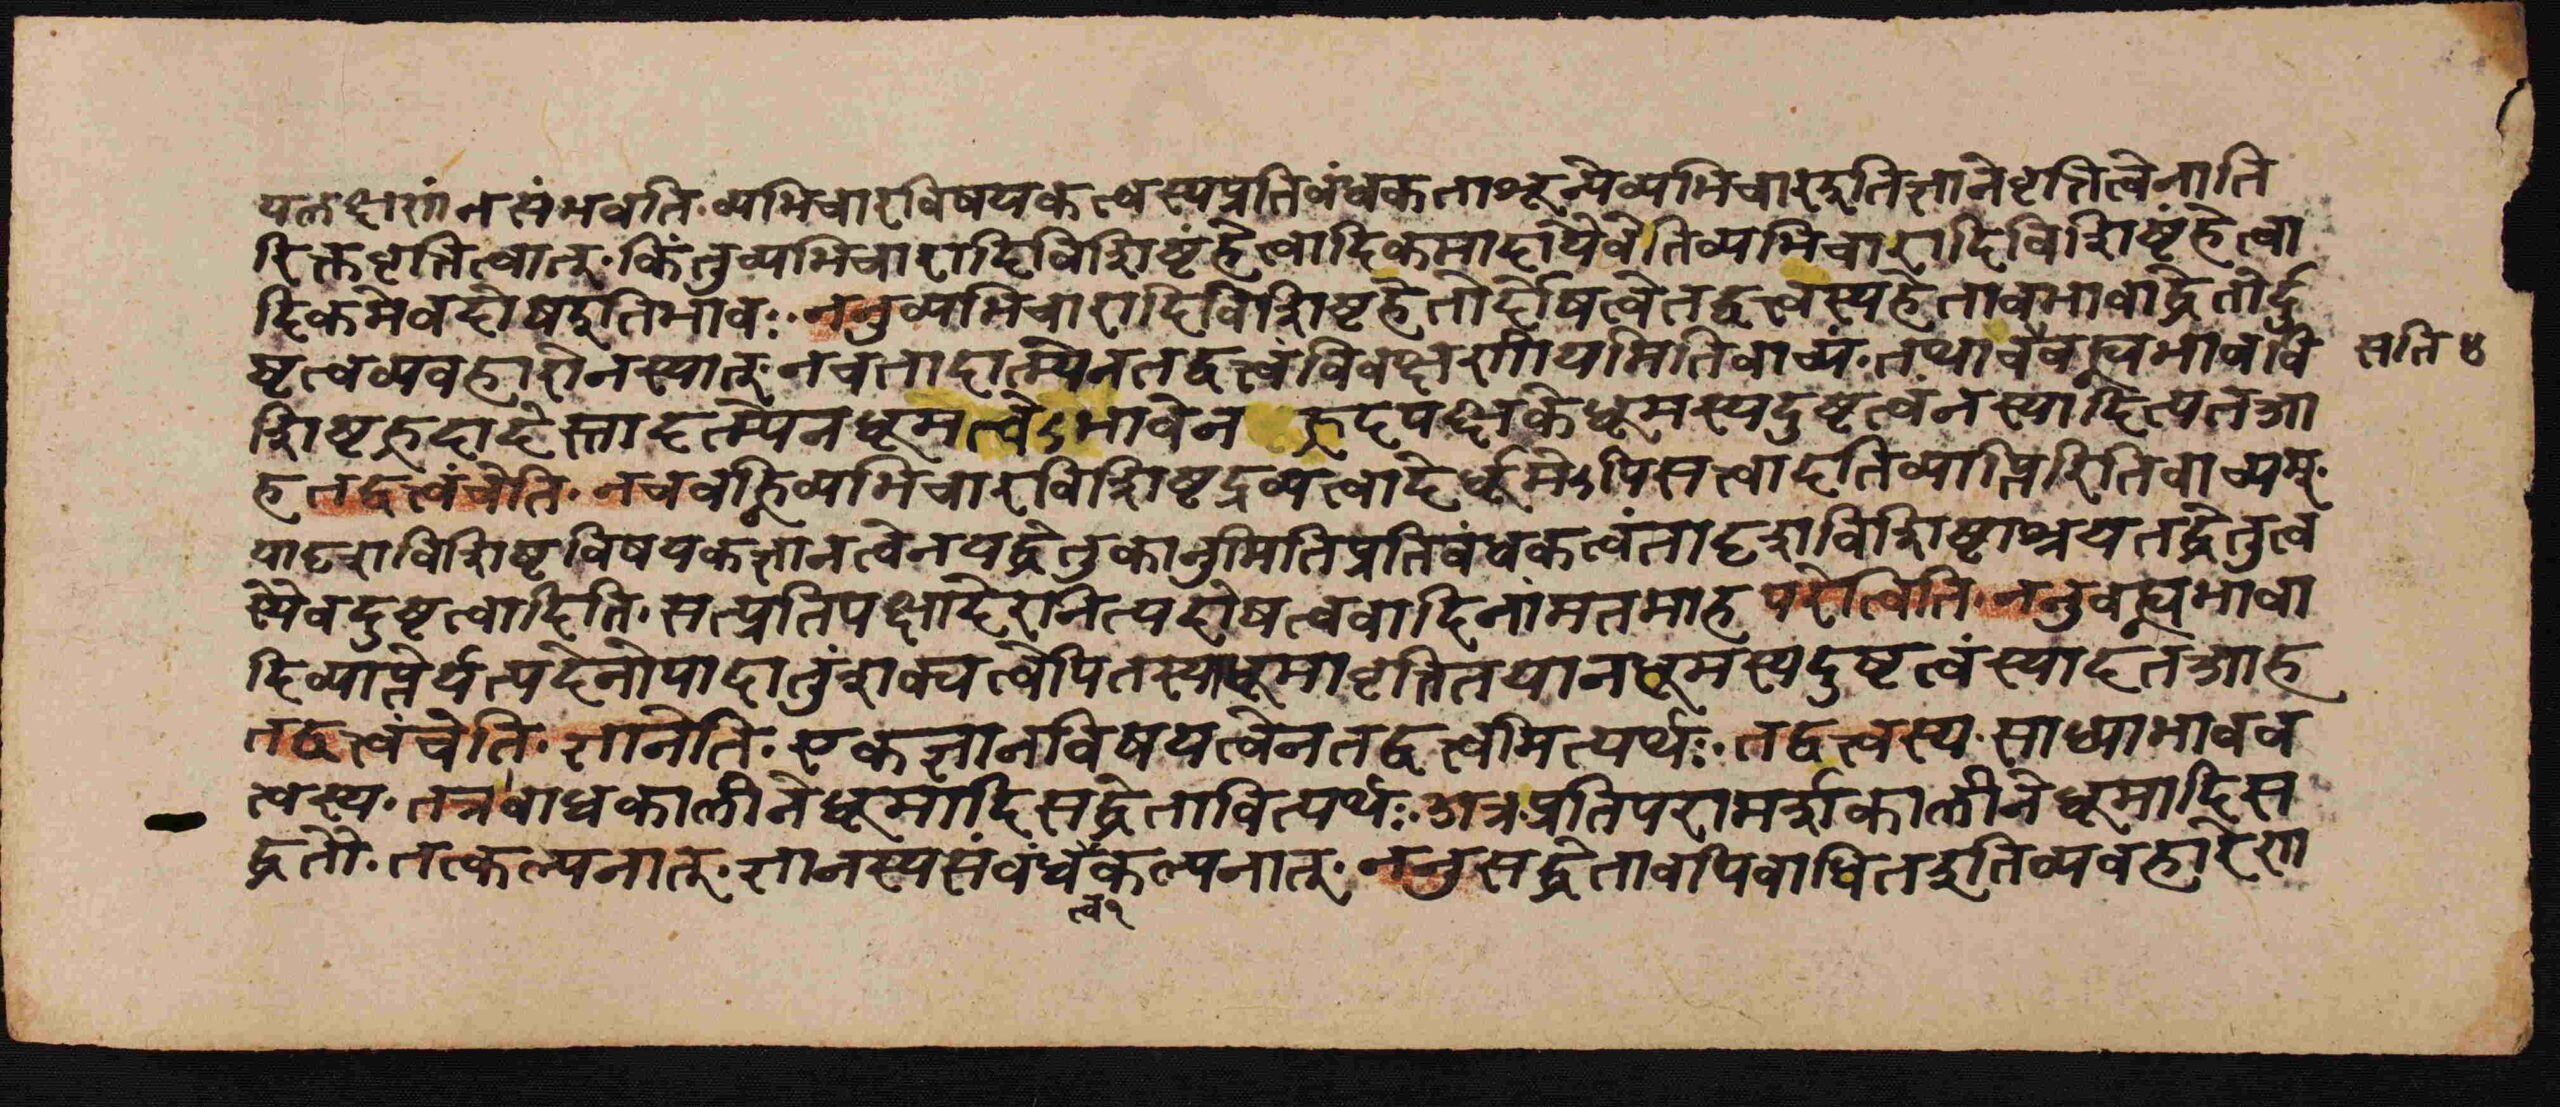 यलक्षणं न संभवति. व्यभिचारविषयकत्वस्य प्रतिबंधकताशून्ये व्यभिचार इति ज्ञाने वृत्तित्वेनाति
रिक्तवृत्तित्वात्. किंतु व्यभिचारादिविशिष्टं हेत्वादिकमादायैवेति व्यभिचारादिविशिष्टं हेत्वा
दिकमेव दोष इति भावः. ननु व्यभिचारादिविशिष्टहेतोर्दोषत्वे तद्वत्त्वस्य हेतावभावाद्धेतोर्दु
ष्टत्वव्यवहारो न स्यात्. न च तादात्म्येन तद्वत्त्वं विवक्षणीयमिति वाच्यं. तथा चैवह्न्यभाववि
सति ४
शिष्टह्रदादेस्तादात्म्येन धूमत्वेऽभावेन ह्रदपक्षके धूमस्य दुष्टत्वं न स्यादित्यत आ
ह तद्वत्त्वं चेति. न च वह्निव्यभिचारविशिष्टद्रव्यत्वादेर्धूमेऽपि सत्त्वादतिव्याप्तिरिति वाच्यम्.
यादृशविशिष्टविषयकज्ञानत्वेन यद्धेतुकानुमितिप्रतिबंधकत्वं तादृशविशिष्टाश्रयतद्धेतुत्व
स्यैव दुष्टत्वादिति. सत्प्रतिपक्षादेरनित्यदोषत्ववादिनां मतमाह परेत्विति. ननु वह्न्यभावा
दिव्याप्तेर्यत्पदेनोपादातुं शक्यत्वेपि तस्या धूमावृत्तितया न धूमस्य दुष्टत्वं स्यादत आह
तद्वत्त्वं चेति. ज्ञानेति. एकज्ञानविषयत्वेन तद्वत्त्वमित्यर्थः. तद्वत्त्वस्य. साध्याभावव
त्त्वस्य. तत्र बाधकालीने धूमादिसद्धेतावित्यर्थः. अत्र प्रतिपरामर्शकालीने धूमादिस
द्धेतौ. तत्कल्पनात्. ज्ञानस्य संबंधकल्पनात्. ननु सद्धेतावपि बाधित इति व्यवहारेणा
त्व १